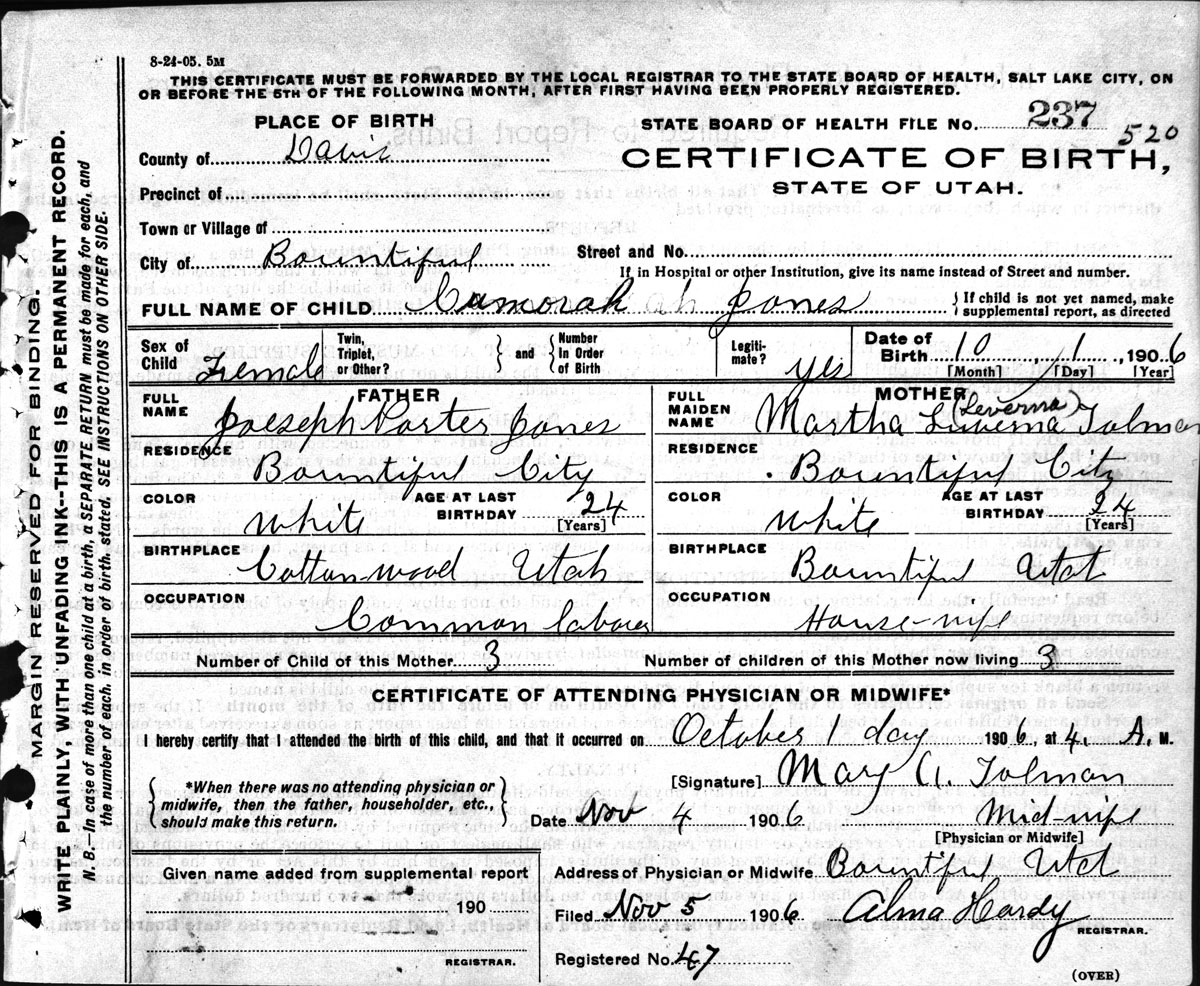 8-24-05. 5M
THIS CERTIFICATE MUST BE FORWARDED BY THE LOCAL REGISTRAR TO THE STATE BOARD OF HEALTH, SALT LAKE CITY, ON
OR BEFORE THE 5TH OF THE FOLLOWING MONTH, AFTER FIRST HAVING BEEN PROPERLY REGISTERED.
PLACE OF BIRTH
STATE BOARD OF HEALTH FILE No. 237
520
County of Davis
CERTIFICATE OF BIRTH,
STATE OF UTAH.
Precinct of
Town or Village of
City of Bountiful
Street and No.
If in Hospital or other Institution, give its name instead of Street and number.
FULL NAME OF CHILD Cumorah ah Jones
If child is not yet named, make
supplemental report, as directed
Sex of Child Female
Twin, Triplet, or Other?
and
Number In Order of Birth
Legiti-mate? yes
Date of Birth 10 1 1906
[Month] [Day] [Year]
FATHER
FULL NAME Joeseph Porter Jones
RESIDENCE
Bountiful City
COLOR White
AGE AT LAST BIRTHDAY 24
[Years]
BIRTHPLACE
Cotton-wood Utah
OCCUPATION
Common laborer
MOTHER
FULL MAIDEN NAME Martha Luverna (Leverna) Tolman
RESIDENCE
Bountiful City
COLOR White
AGE AT LAST BIRTHDAY 24
[Years]
BIRTHPLACE
Bountiful Utah
OCCUPATION
House-wife
Number of Child of this Mother 3
Number of children of this Mother now living 3
CERTIFICATE OF ATTENDING PHYSICIAN OR MIDWIFE*
I hereby certify that I attended the birth of this child, and that it occurred on October 1 day 1906, at 4. A. M.
*When there was no attending physician or
midwife, then the father, householder, etc.,
should make this return.
[Signature] Mary A. Tolman
Date Nov 4 1906
Mid-wife
[Physician or Midwife]
Given name added from supplemental report
190
REGISTRAR.
Address of Physician or Midwife Bountiful Utah
Filed Nov 5 1906 Alma Hardy
REGISTRAR.
Registered No. 47
(OVER)
MARGIN RESERVED FOR BINDING.
WRITE PLAINLY, WITH UNFADING INK--THIS IS A PERMANENT RECORD.
N. B.--In case of more than one child at a birth, a SEPARATE RETURN must be made for each, and
the number of each, in order of birth, stated. SEE INSTRUCTIONS ON OTHER SIDE.